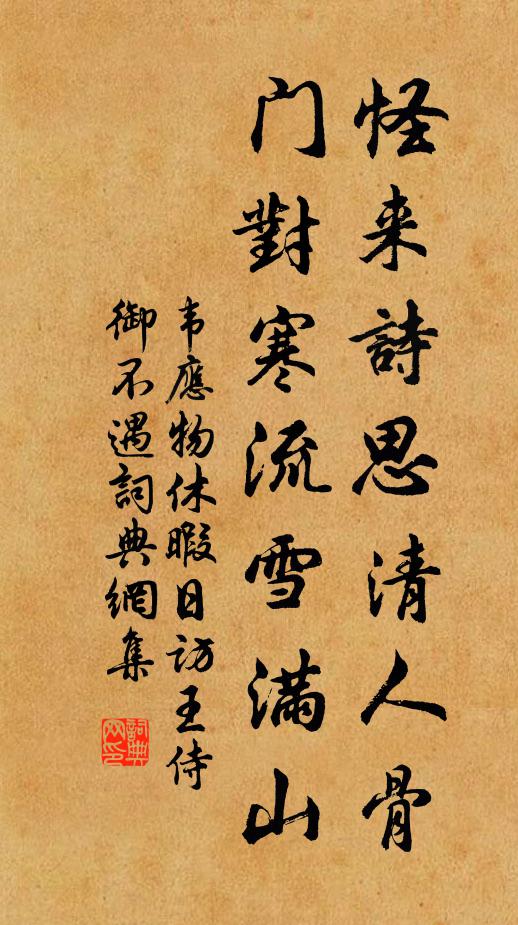 怪来詩思清人骨
门對寒流雪滿山
韦應物休暇日访王侍
御不遇詞典網集
詞典网印